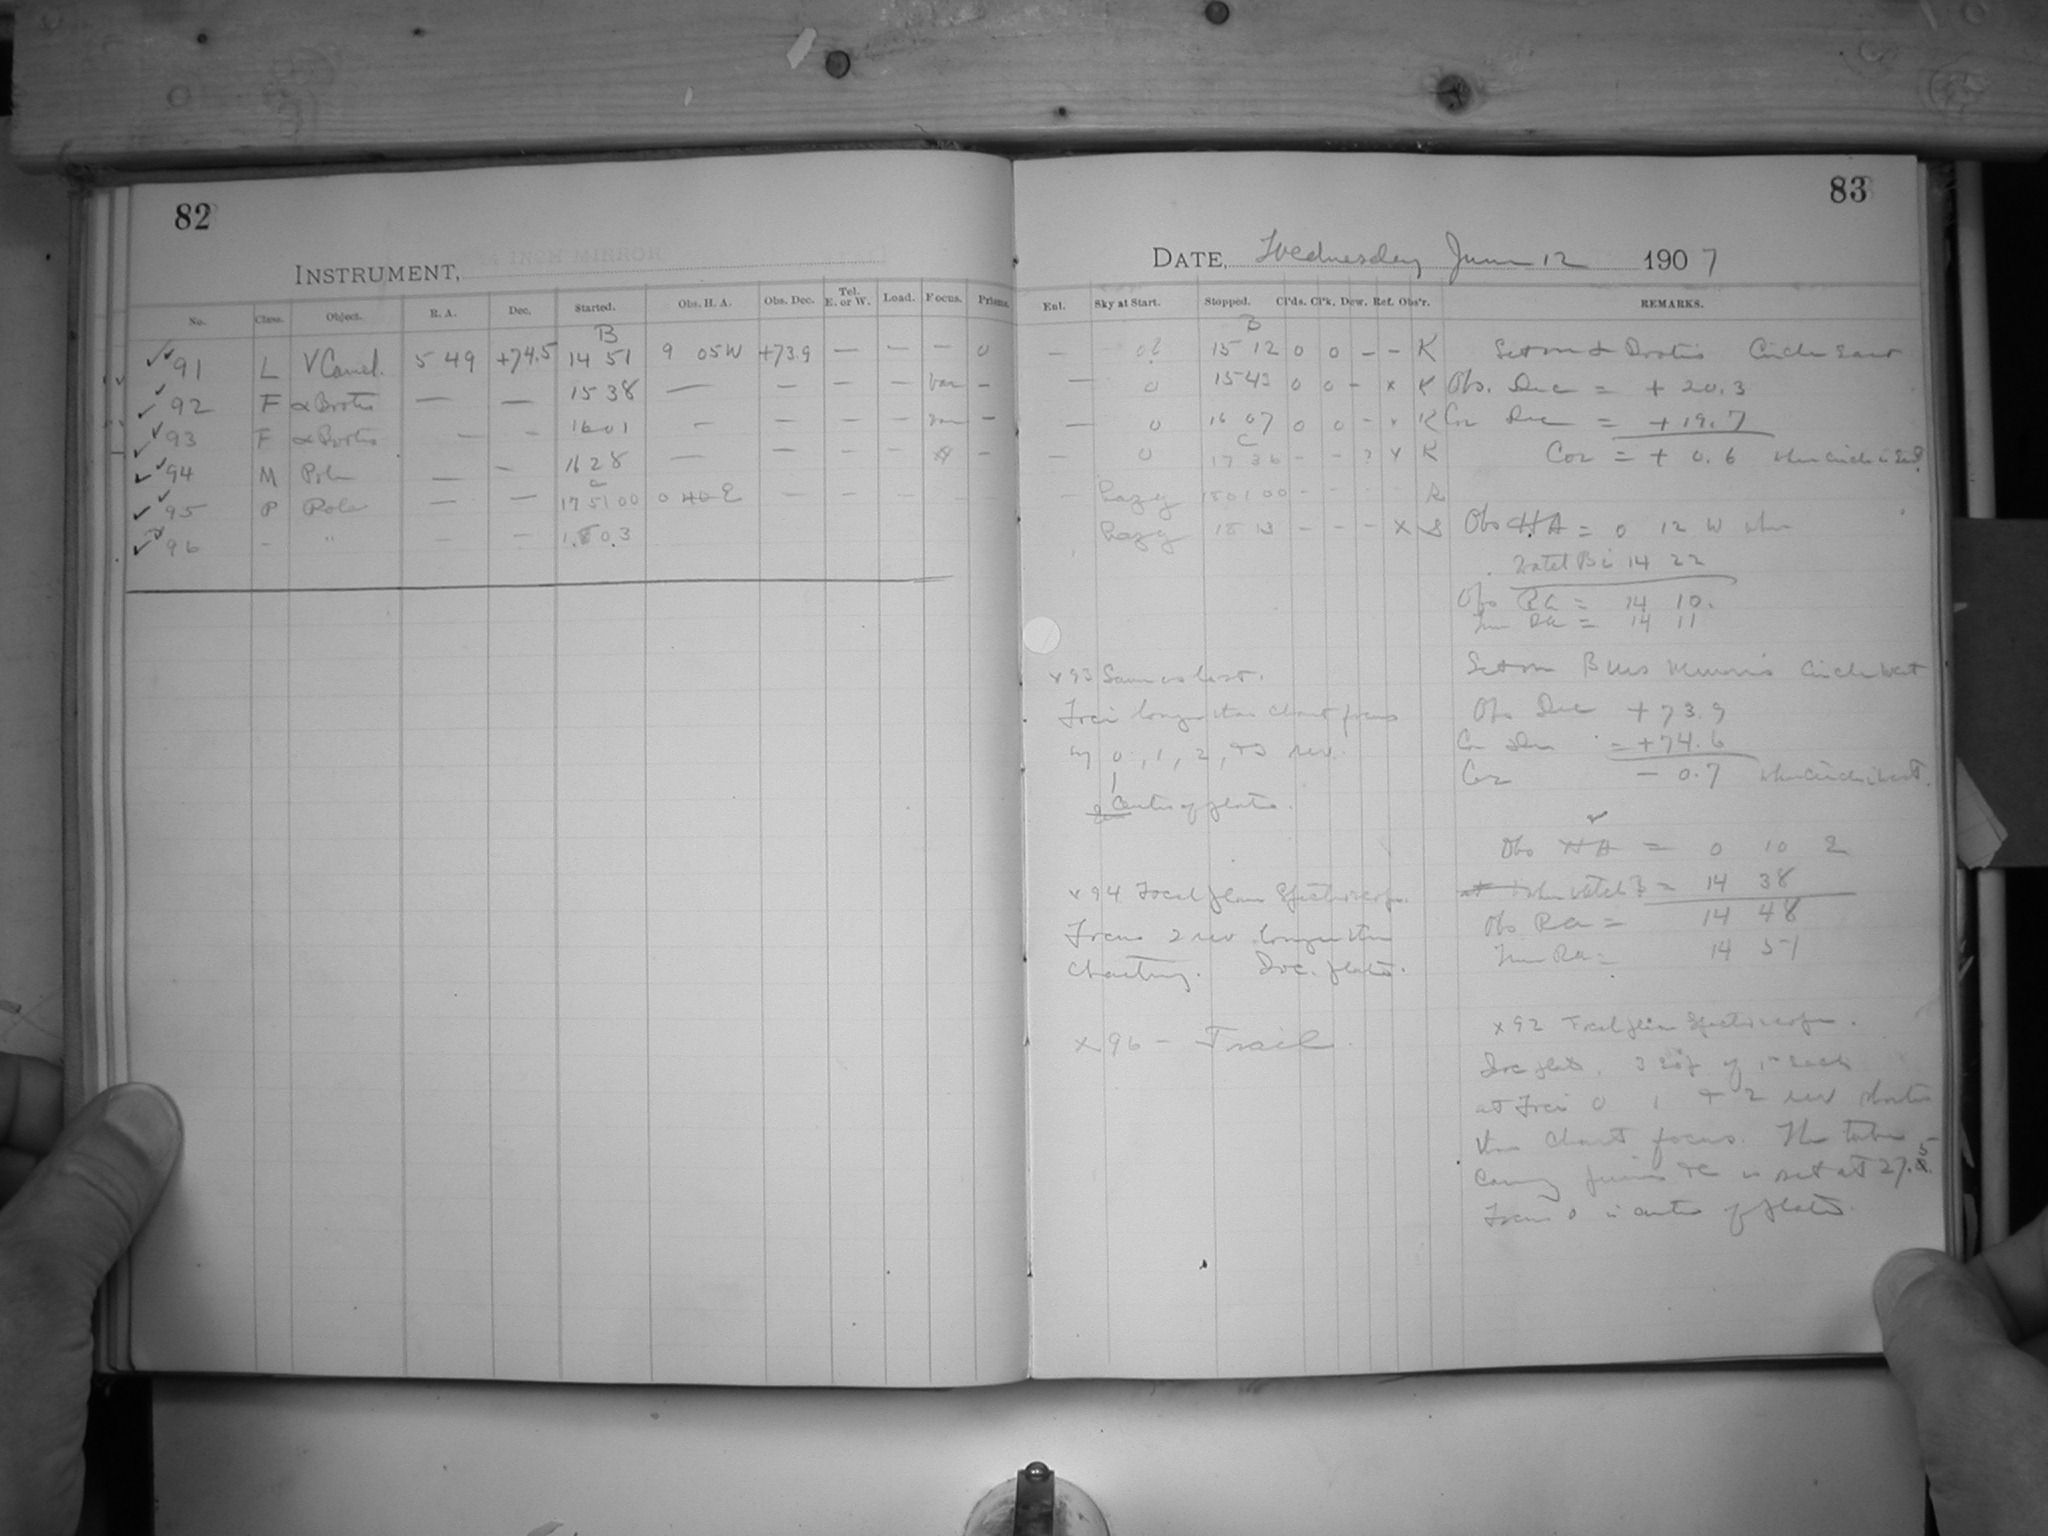 82
INSTRUMENT,
No. Class. Object. R. A. Dec. Started. Obs. H. A. Obs. Dec. Tel. E. or W. Load. Focus. Prisms.
B
91 L V Camel. 5 49 +74.5 14 51 9 05 W +73.9 — — — 0
92 F α Bootis — — 15 38 — — — — var —
93 F α Bootis — — 16 01 — — — — var —
94 M Pole — — 16 28 — — — — —
C
95 P Pole — — 17 51 00 0 40 E — — — — —
96 - " — — 18 03
83
DATE, Wednesday June 12 1907
Ent. Sky at Start. Stopped. Cl'ds. Cl'k. Dew. Ref. Obs'r. REMARKS.
B
— 0? 15 12 0 0 – – K
— 0 15 43 0 0 – x K
— 0 16 07 0 0 – x K
C
— 0 17 36 – – ? x K
— hazy 18 01 00 – – –
hazy 18 13 – – – x S
Set on α Bootis Circle East
Obs. Dec = + 20.3
Cor Dec = +19.7
Cor = + 0.6 when circle is East
Obs HA = 0 12 W when
Watch B is 14 22
Obs RA = 14 10.
True RA = 14 11
Set on B Urs Minoris Circle West
Obs Dec +73.9
Cor Dec = +74.6
Cor – 0.7 when circle is West.
Obs HA = 0 10 E
when Watch B = 14 38
Obs RA = 14 48
True RA = 14 51
x92 Focal plane Spectroscope.
Iso plate. 3 exp of 1m each
at Foci 0 1 + 2 rev shorter
than Chart focus. The tube
carrying prism &c is set at 27.5
Focus 0 is center of plate.
x93 Same as last.
Foci longer than chart focus
by 0, 1, 2, +3 rev.
Center of plate.
x94 Focal plane Spectroscope.
Focus 2 rev longer than
Charting. Iso. plate.
x96 – Trail.